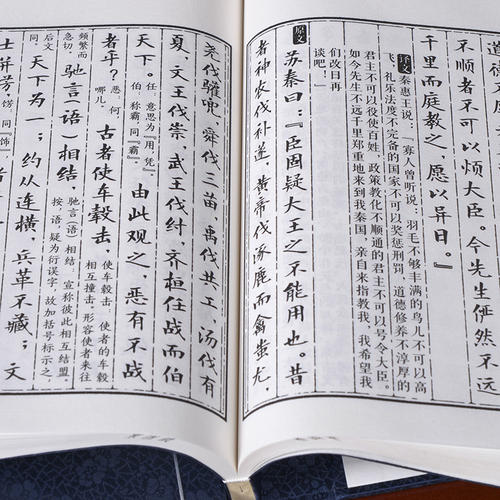 道德不厚
不顺者不可以烦大臣。今先生俨然不
千里而庭教之，愿以异日。』
译文 秦惠王说：“寡人曾听说：羽毛不够丰满的鸟儿不可以高
飞，礼乐法度不完备的国家不可以奖惩刑罚，道德修养不淳厚的
君主不可以役使百姓，政策教化不顺通的君主不可以号令大臣。
如今先生不远千里郑重地来到我秦国，亲自来指教我，我希望我
们改日再
谈吧！”
原文
苏秦曰：『臣固疑大王之不能用也。昔
者神农伐补遂，黄帝伐涿鹿而禽蚩尤，
尧伐驩兜，舜伐三苗，禹伐共工，汤伐有
夏，文王伐崇，武王伐纣，齐桓任战而伯
天下。
任，意思为『用，凭』
伯，称霸，同『霸』
由此观之，恶有不战
者乎？
恶，何，
哪儿。
古者使车毂击，
使车毂击，使者的车毂
相互撞击，形容使者来往
频繁而
急切。
驰言（语）相结，
驰言（语）相结，宣称彼此相互结盟。
按：语疑为衍误字，故加括号标示之，
后文
同。
天下为一；约从连横，兵革不藏；文
士并